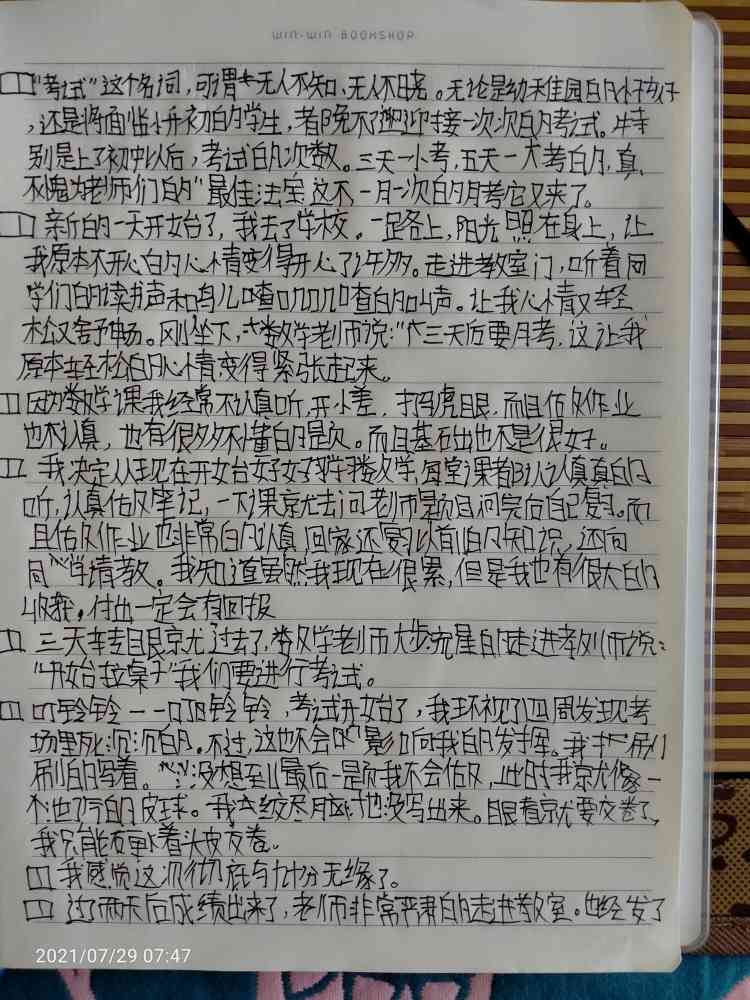 WIN-WIN BOOKSHOP
“考试”这个名词，可谓无人不知、无人不晓。无论是幼稚园的小孩子
，还是将面临小升初的学生，都免不了迎接一次次的考试。特
别是上了初中以后，考试的次数。三天一小考，五天一大考的，真
不愧为老师们的“最佳法宝这不一月一次的月考它又来了。
新的一天开始了，我去了学校。一路上，阳光照在身上，让
我原本不开心的心情变得开心了许多。走进教室门，听着同
学们的读书声和鸟儿喳叽叽喳的叫声。让我心情又轻
松又舒畅。刚坐下，数学老师说：“三天后要月考，这让我
原本轻松的心情变得紧张起来。
因为数学课我经常不认真听，开小差，打马虎眼，而且做作业
也不认真，也有很多不懂的题。而且基础也不是很好。
我决定从现在开始好好学习数学，每堂课都认认真真的
听，认真做笔记，一下课就去问老师题目问完后自己复习。而
且做作业也非常的认真，回家还复习以前的知识，还向
同学请教。我知道虽然我现在很累，但是我也有很大的
收获。付出一定会有回报
三天转眼就过去了，数学老师大步流星的走进教列师说：
“开始拉桌子”我们要进行考试。
叮铃铃——叮铃铃，考试开始了，我环视了四周发现考
场里死沉沉的。不过，这也不会影响向我的发挥。我刷
刷的写着。没想到最后一题我不会做，此时我就像一
个泄气的皮球。我绞尽脑汁也没写出来。眼看就要交卷了，
我只能硬着头皮交卷。
我感觉这次彻底与九十分无缘了。
过了两天后成绩出来了，老师非常严肃的走进教室。已经发了
2021/07/29 07:47